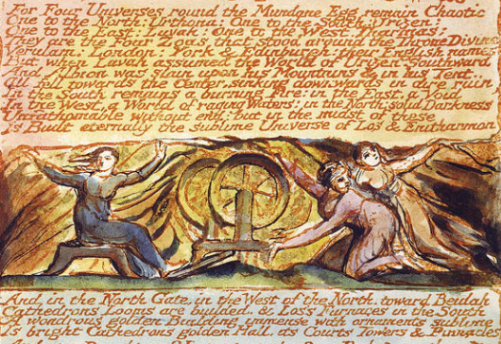 For Four Universes round the Mundane Egg remain Chaotic
One to the North; Urthona: One to the South; Urizen:
One to the East: Luvah: One to the West, Tharmas;
They are the Four Zoas that stood around the Throne Divine
Verulam: London: York & Edinburgh: their English names
But when Luvah assumed the World of Urizen Southward
And Albion was slain upon his Mountains & in his Tent.
All fell towards the Center, sinking downwards in dire ruin
In the South remains a burning Fire: in the East. a Void
In the West, a World of raging Waters: in the North; solid Darkness
Unfathomable without end: but in the midst of these
Is Built eternally the sublime Universe of Los & Enitharmon
And in the North Gate, in the West of the North. toward Beulah
Cathedrons Looms are builded. & Los's Furnaces in the South
A wondrous golden Building immense with ornaments sublime
Is bright Cathedrons golden Hall, its Courts Towers & Pinnacles